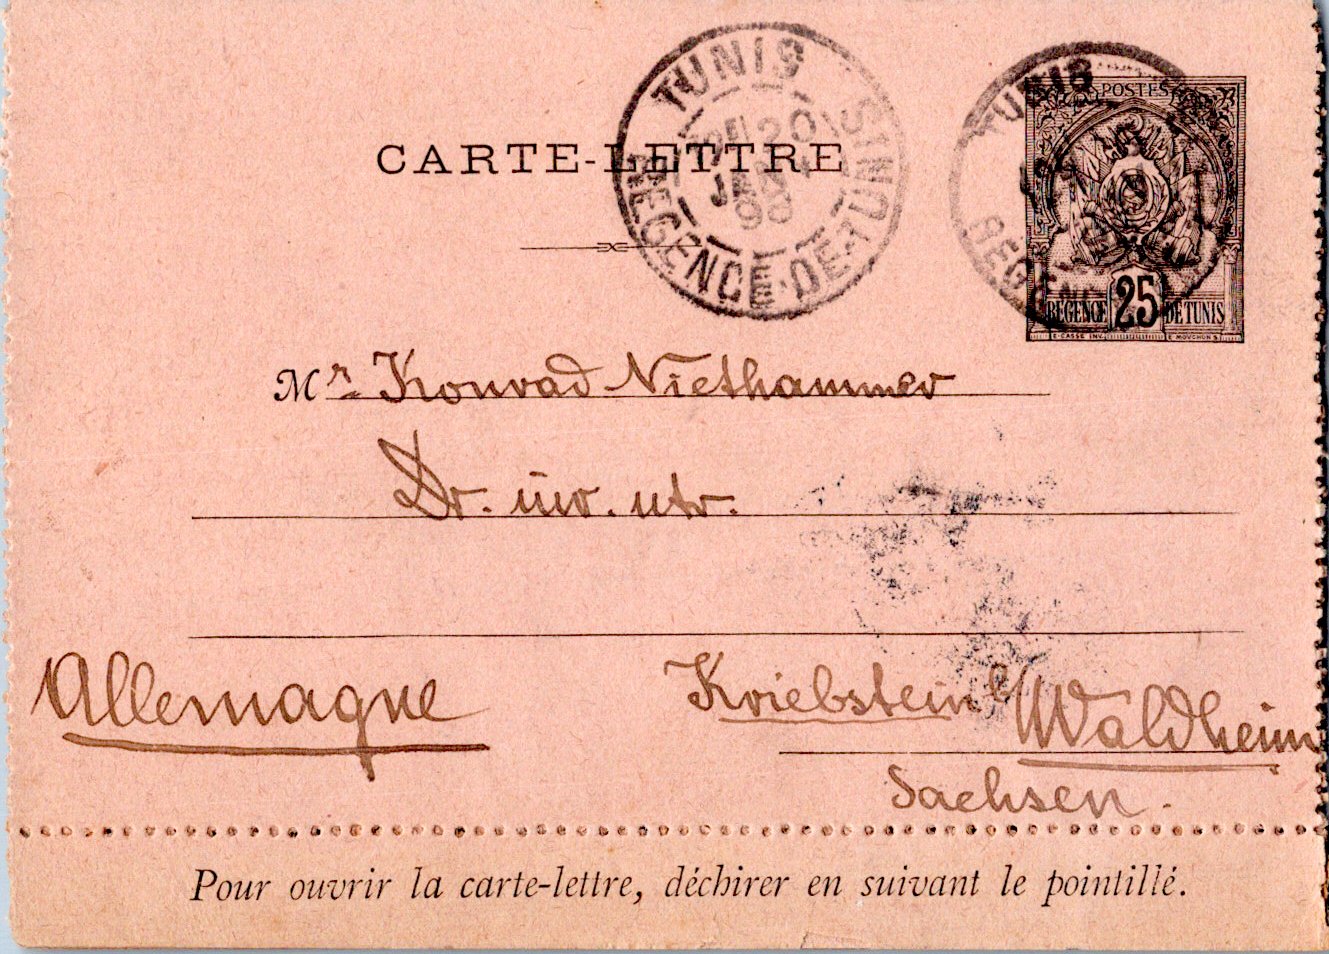 CARTE-LETTRE
TUNIS
20
JANV
98
REGENCE-DE-TUNIS
TUNIS
REGENCE
POSTES
25
REGENCE DE TUNIS
E. CASSE INV. E. MOUCHON S.
Mr. Konrad Niethammer
Dr. iur. utr.
Allemagne
Kriebstein b/ Waldheim
Sachsen.
Pour ouvrir la carte-lettre, déchirer en suivant le pointillé.